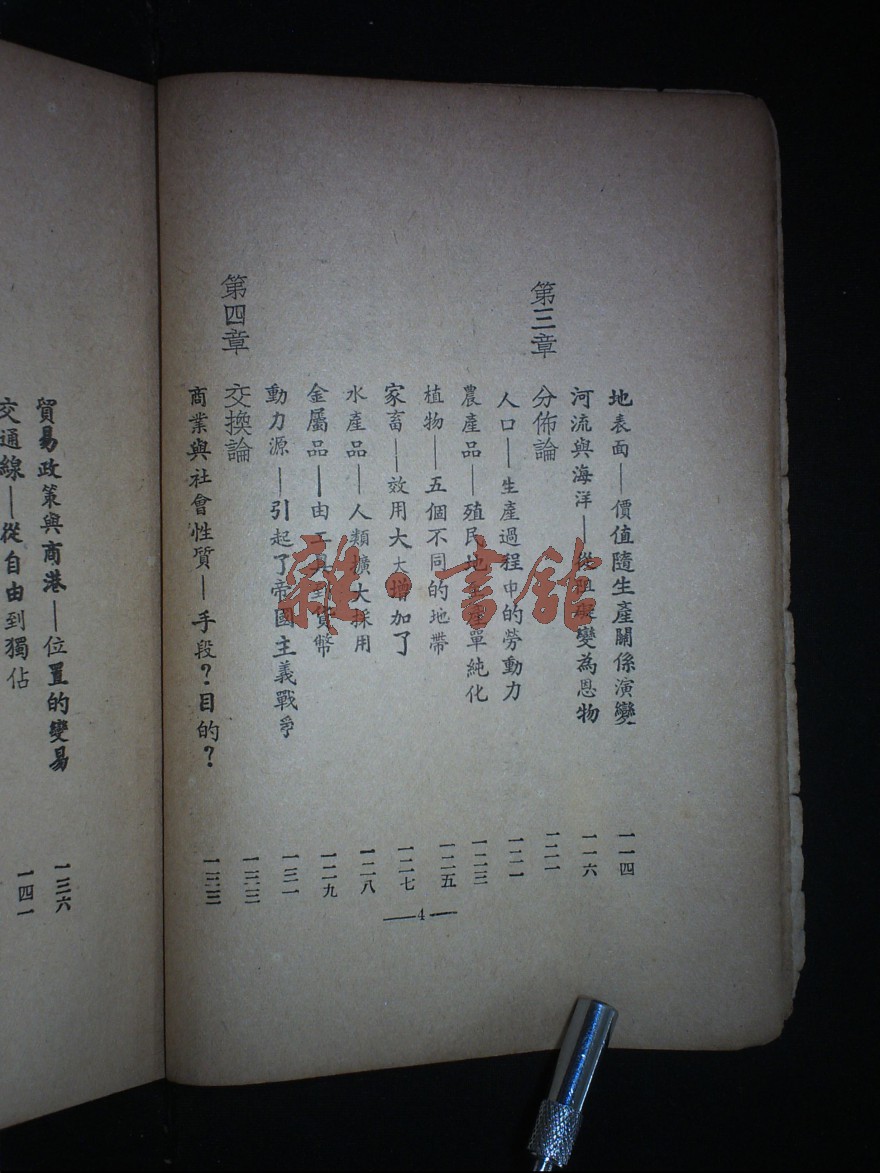 地表面——價值隨生產關係演變 一一四
河流與海洋——從阻礙變為恩物 一一六
第三章 分佈論 一二一
人口——生產過程中的勞動力 一二一
農產品——殖民地生產單純化 一二三
植物——五個不同的地帶 一二五
家畜——效用大大增加了 一二七
水產品——人類擴大採用 一二八
金屬品——由工具到貨幣 一二九
動力源——引起了帝國主義戰爭 一三一
第四章 交換論 一三三
商業與社會性質——手段？目的？ 一三三
—4—
貿易政策與商港——位置的變易 一三六
交通線——從自由到獨佔 一四一
雜·書館